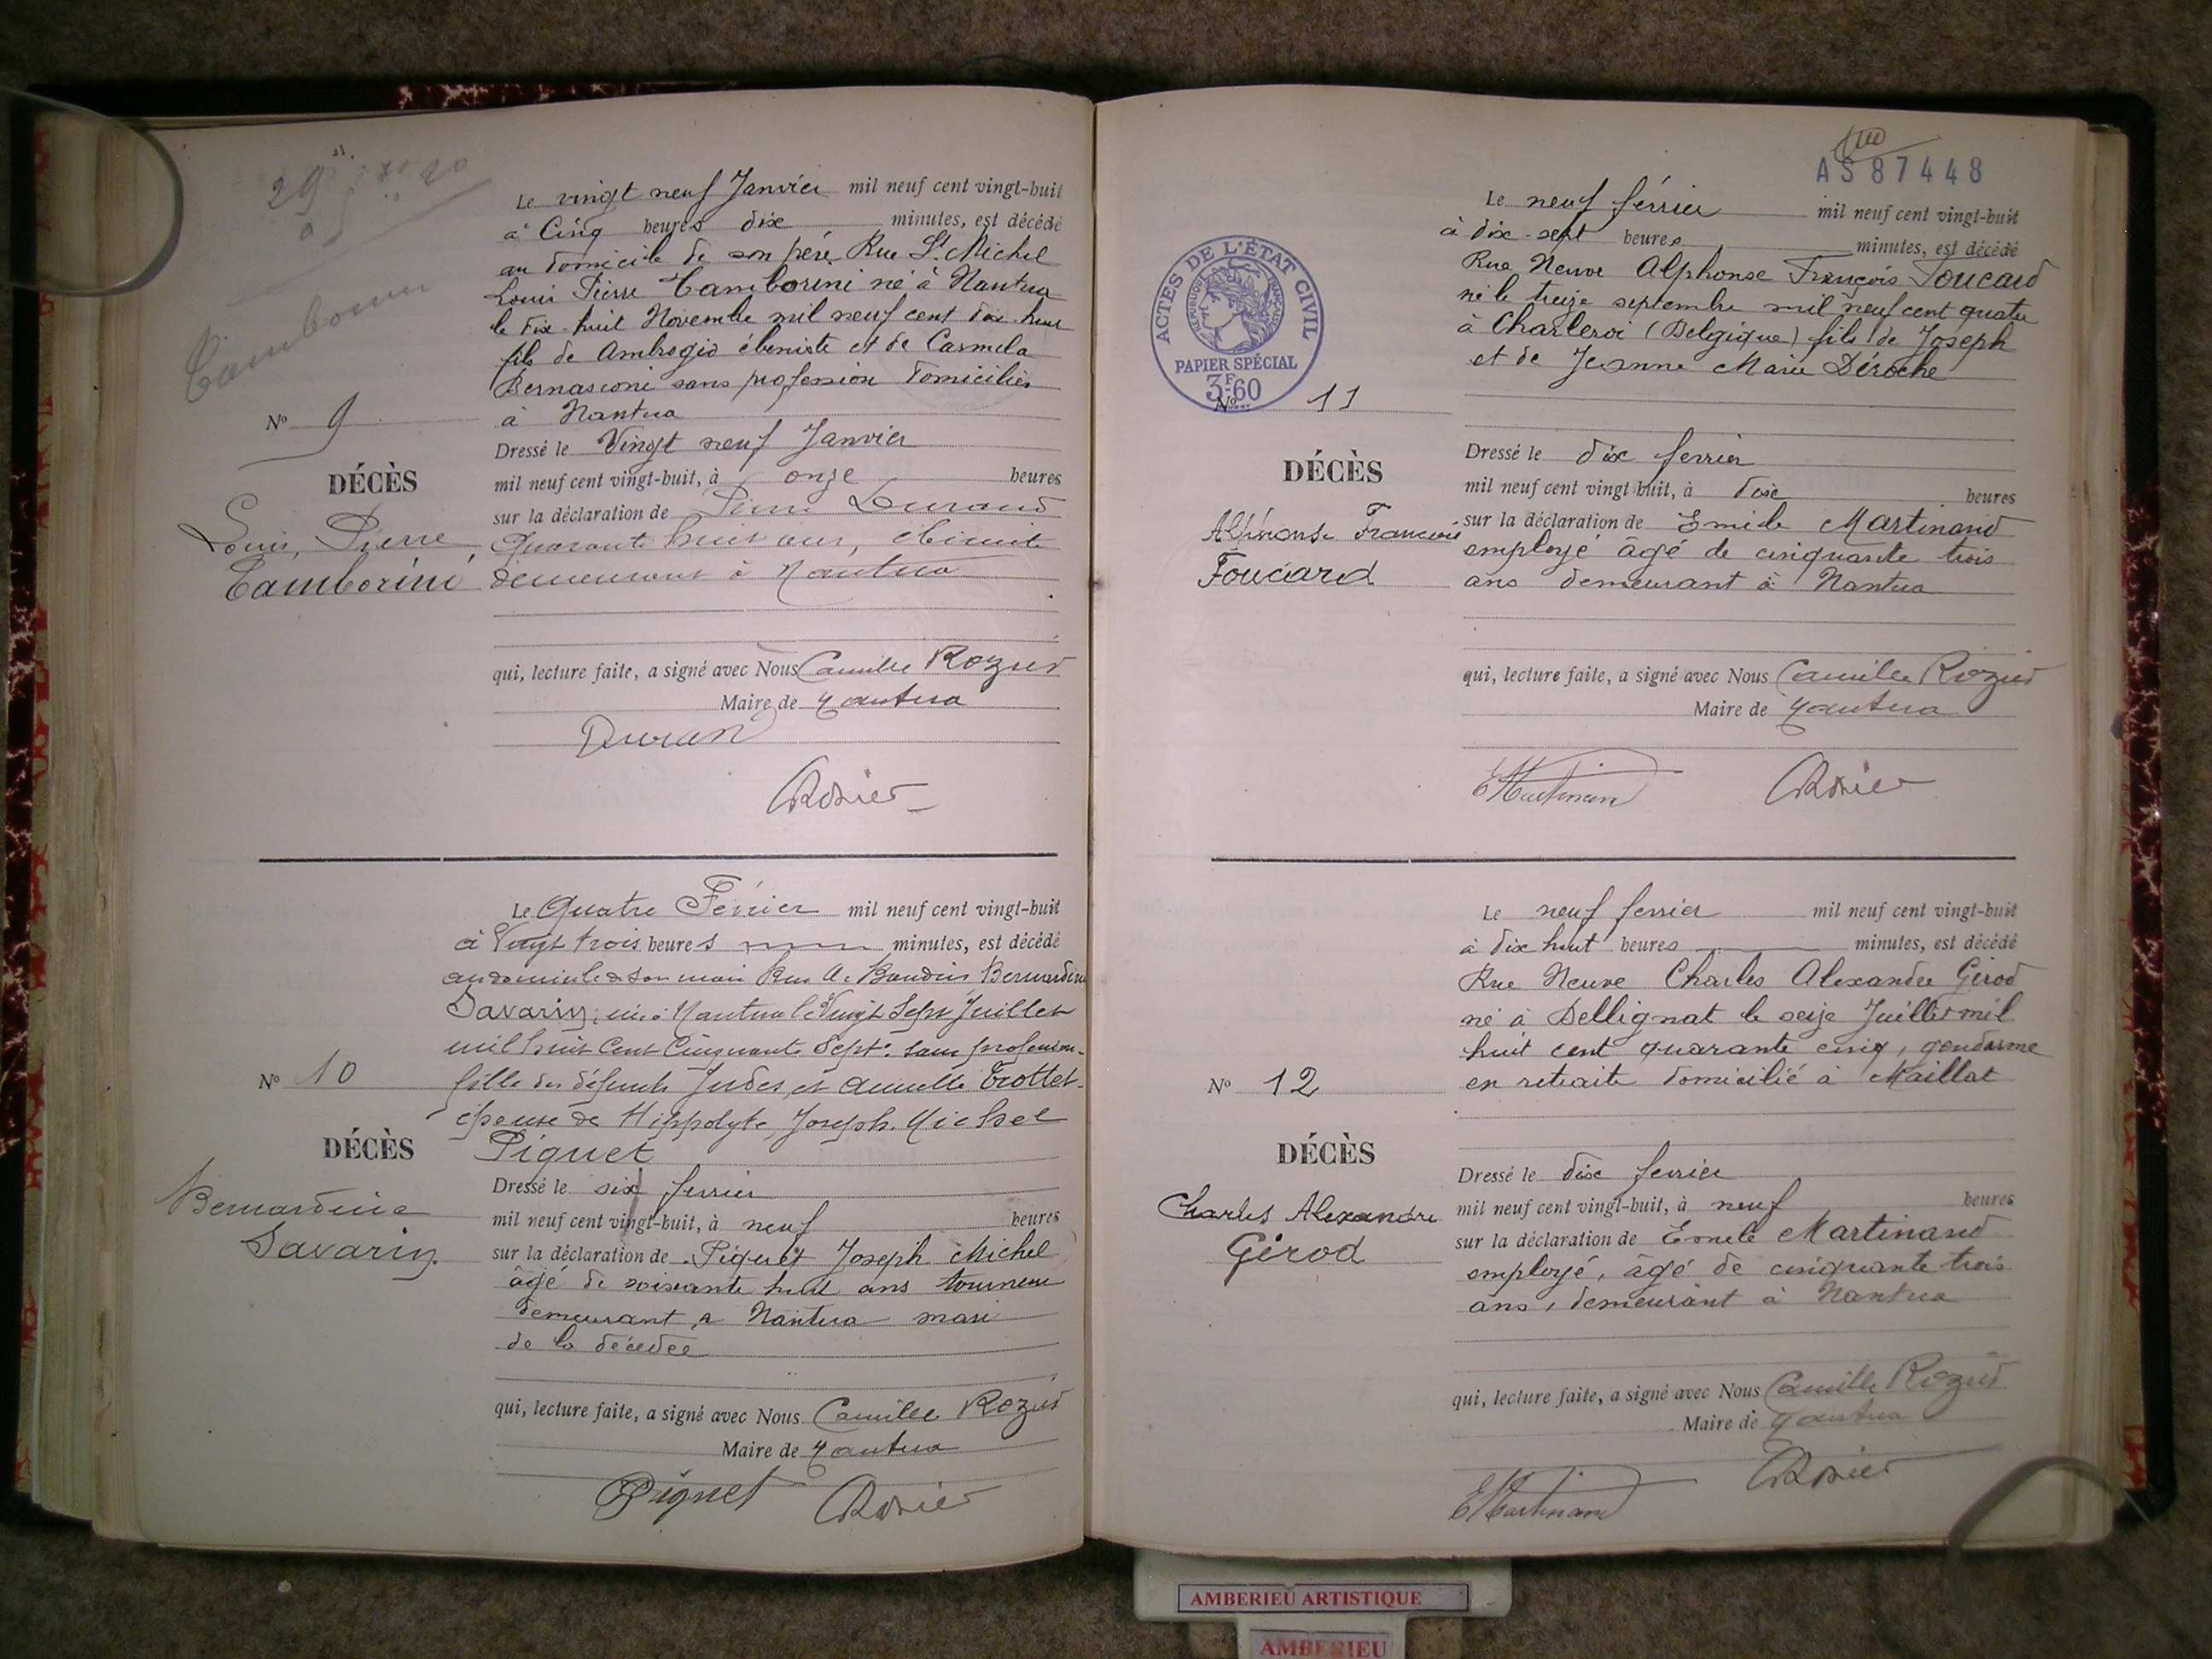 29
Tamborini
Le vingt neuf Janvier mil neuf cent vingt-huit
à Cinq heures dix minutes, est décédé
au domicile de son père Rue St Michel
Louis Pierre Tamborini né à Nantua
le dix-huit Novembre mil neuf cent dix-huit
fils de Ambrogio ébeniste et de Carmela
Bernasconi sans profession domiciliés
à Nantua
N° 9
DÉCÈS
Louis, Pierre
Tamborini
Dressé le Vingt neuf Janvier
mil neuf cent vingt-huit, à onze heures
sur la déclaration de Pierre Durand
Quarante huit ans, ébéniste
demeurant à Nantua
qui, lecture faite, a signé avec Nous Camille Rozier
Maire de Nantua
Durand
CRozier
Le Quatre Février mil neuf cent vingt-huit
à Vingt trois heures minutes, est décédé
au domicile de son mari Rue A. Baudin Bernardine
Savarin, née à Nantua le Vingt Sept Juillet
mil huit Cent Cinquante Sept. sans profession.
fille des défunts Judes, et Trottet.
épouse de Hippolyte Joseph. Michel
Piquet
N° 10
DÉCÈS
Bernardine
Savarin.
Dressé le six fevrier
mil neuf cent vingt-huit, à neuf heures
sur la déclaration de Piquet Joseph Michel
âgé de soixante huit ans tourneur
demeurant a Nantua mari
de la décédée
qui, lecture faite, a signé avec Nous Camille Rozier
Maire de Nantua
Piquet CRozier
AS87448
ACTES DE L'ÉTAT CIVIL
RÉPUBLIQUE FRANÇAISE
PAPIER SPÉCIAL
3F.60
Le neuf février mil neuf cent vingt-huit
à dix-sept heures minutes, est décédé
Rue Neuve Alphonse François Foucard
né le treize septembre mil neuf cent quatre
à Charleroi (Belgique) fils de Joseph
et de Jeanne Marie Déroche
N° 11
DÉCÈS
Alphonse François
Foucard
Dressé le dix fevrier
mil neuf cent vingt-huit, à dix heures
sur la déclaration de Emile Martinand
employé âgé de cinquante trois
ans demeurant à Nantua
qui, lecture faite, a signé avec Nous Camille Rozier
Maire de Nantua
EMartinand CRozier
Le neuf fevrier mil neuf cent vingt-huit
à dix huit heures minutes, est décédé
Rue Neuve Charles Alexandre Girod
né à Bellignat le seize Juillet mil
huit cent quarante cinq, gendarme
en retraite domicilié à Maillat
N° 12
DÉCÈS
Charles Alexandre
Girod
Dressé le dix fevrier
mil neuf cent vingt-huit, à neuf heures
sur la déclaration de Emile Martinand
employé, âgé de cinquante trois
ans, demeurant à Nantua
qui, lecture faite, a signé avec Nous Camille Rozier
Maire de Nantua
EMartinand CRozier
AMBERIEU ARTISTIQUE
AMBERIEU